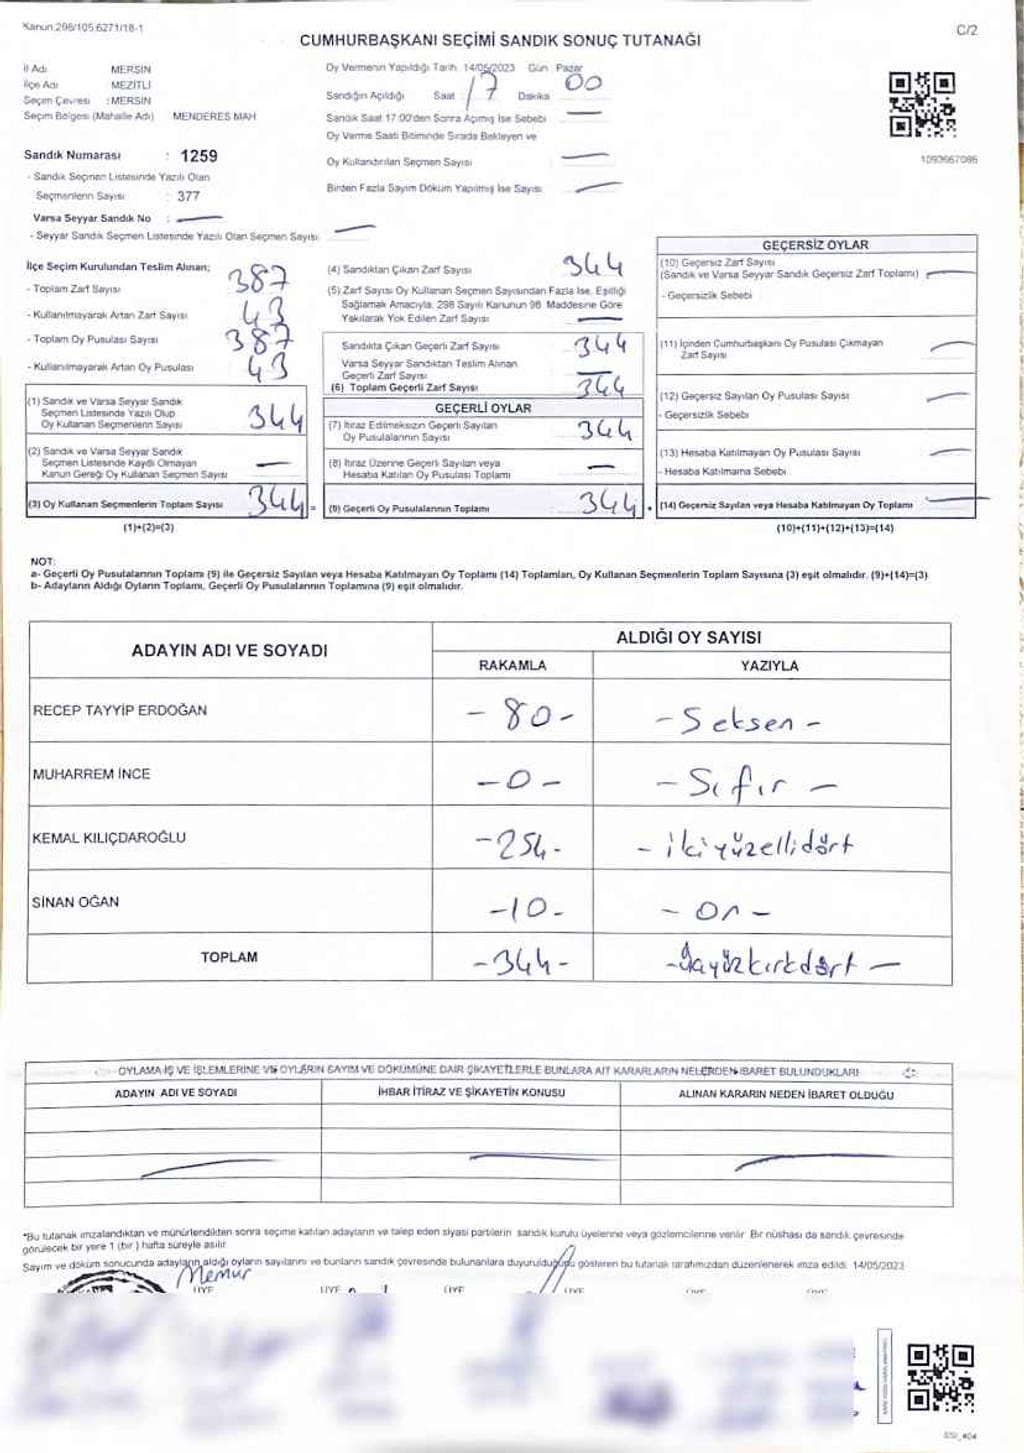 Kanun:298/105.6271/18-1
C/2
CUMHURBAŞKANI SEÇİMİ SANDIK SONUÇ TUTANAĞI
İl Adı : MERSİN
İlçe Adı : MEZİTLİ
Seçim Çevresi : MERSİN
Seçim Bölgesi (Mahalle Adı) MENDERES MAH
Sandık Numarası : 1259
- Sandık Seçmen Listesinde Yazılı Olan
Seçmenlerin Sayısı : 377
Varsa Seyyar Sandık No : —
- Seyyar Sandık Seçmen Listesinde Yazılı Olan Seçmen Sayısı: —
Oy Vermenin Yapıldığı Tarih: 14/05/2023 Gün: Pazar
Sandığın Açıldığı Saat 17 Dakika 00
Sandık Saat 17:00'den Sonra Açılmış İse Sebebi —
Oy Verme Saati Bitiminde Sırada Bekleyen ve
Oy Kullandırılan Seçmen Sayısı —
Birden Fazla Sayım Döküm Yapılmış İse Sayısı —
1093667086
İlçe Seçim Kurulundan Teslim Alınan;
- Toplam Zarf Sayısı 387
- Kullanılmayarak Artan Zarf Sayısı 43
- Toplam Oy Pusulası Sayısı 387
- Kullanılmayarak Artan Oy Pusulası 43
(1) Sandık ve Varsa Seyyar Sandık
Seçmen Listesinde Yazılı Olup
Oy Kullanan Seçmenlerin Sayısı 344
(2) Sandık ve Varsa Seyyar Sandık
Seçmen Listesinde Kayıtlı Olmayan
Kanun Gereği Oy Kullanan Seçmen Sayısı —
(3) Oy Kullanan Seçmenlerin Toplam Sayısı 344 =
(1)+(2)=(3)
(4) Sandıktan Çıkan Zarf Sayısı 344
(5) Zarf Sayısı Oy Kullanan Seçmen Sayısından Fazla İse, Eşitliği
Sağlamak Amacıyla; 298 Sayılı Kanunun 98. Maddesine Göre
Yakılarak Yok Edilen Zarf Sayısı —
Sandıkta Çıkan Geçerli Zarf Sayısı 344
Varsa Seyyar Sandıktan Teslim Alınan
Geçerli Zarf Sayısı —
(6) Toplam Geçerli Zarf Sayısı 344
GEÇERLİ OYLAR
(7) İtiraz Edilmeksizin Geçerli Sayılan
Oy Pusulalarının Sayısı 344
(8) İtiraz Üzerine Geçerli Sayılan veya
Hesaba Katılan Oy Pusulası Toplamı —
(9) Geçerli Oy Pusulalarının Toplamı 344 +
GEÇERSİZ OYLAR
(10) Geçersiz Zarf Sayısı
(Sandık ve Varsa Seyyar Sandık Geçersiz Zarf Toplamı) —
- Geçersizlik Sebebi
(11) İçinden Cumhurbaşkanı Oy Pusulası Çıkmayan
Zarf Sayısı —
(12) Geçersiz Sayılan Oy Pusulası Sayısı —
- Geçersizlik Sebebi
(13) Hesaba Katılmayan Oy Pusulası Sayısı —
- Hesaba Katılmama Sebebi
(14) Geçersiz Sayılan veya Hesaba Katılmayan Oy Toplamı —
(10)+(11)+(12)+(13)=(14)
NOT:
a- Geçerli Oy Pusulalarının Toplamı (9) ile Geçersiz Sayılan veya Hesaba Katılmayan Oy Toplamı (14) Toplamları, Oy Kullanan Seçmenlerin Toplam Sayısına (3) eşit olmalıdır. (9)+(14)=(3)
b- Adayların Aldığı Oyların Toplamı, Geçerli Oy Pusulalarının Toplamına (9) eşit olmalıdır.
ADAYIN ADI VE SOYADI
ALDIĞI OY SAYISI
RAKAMLA YAZIYLA
RECEP TAYYİP ERDOĞAN -80- -Seksen-
MUHARREM İNCE -0- -Sıfır-
KEMAL KILIÇDAROĞLU -254- -ikiyüzellidört
SİNAN OĞAN -10- -On-
TOPLAM -344- -üçyüzkırkdört-
OYLAMA İŞ VE İŞLEMLERİNE VE OYLARIN SAYIM VE DÖKÜMÜNE DAİR ŞİKAYETLERLE BUNLARA AİT KARARLARIN NELERDEN İBARET BULUNDUKLARI
ADAYIN ADI VE SOYADI İHBAR İTİRAZ VE ŞİKAYETİN KONUSU ALINAN KARARIN NEDEN İBARET OLDUĞU
*Bu tutanak imzalandıktan ve mühürlendikten sonra seçime katılan adayların ve talep eden siyasi partilerin sandık kurulu üyelerine veya gözlemcilerine verilir. Bir nüshası da sandık çevresinde
görülecek bir yere 1 (bir) hafta süreyle asılır.
Sayım ve döküm sonucunda adayların aldığı oyların sayılarını ve bunların sandık çevresinde bulunanlara duyurulduğunu gösteren bu tutanak tarafımızdan düzenlenerek imza edildi. 14/05/2023
Memur
ÜYE ÜYE ÜYE ÜYE ÜYE ÜYE